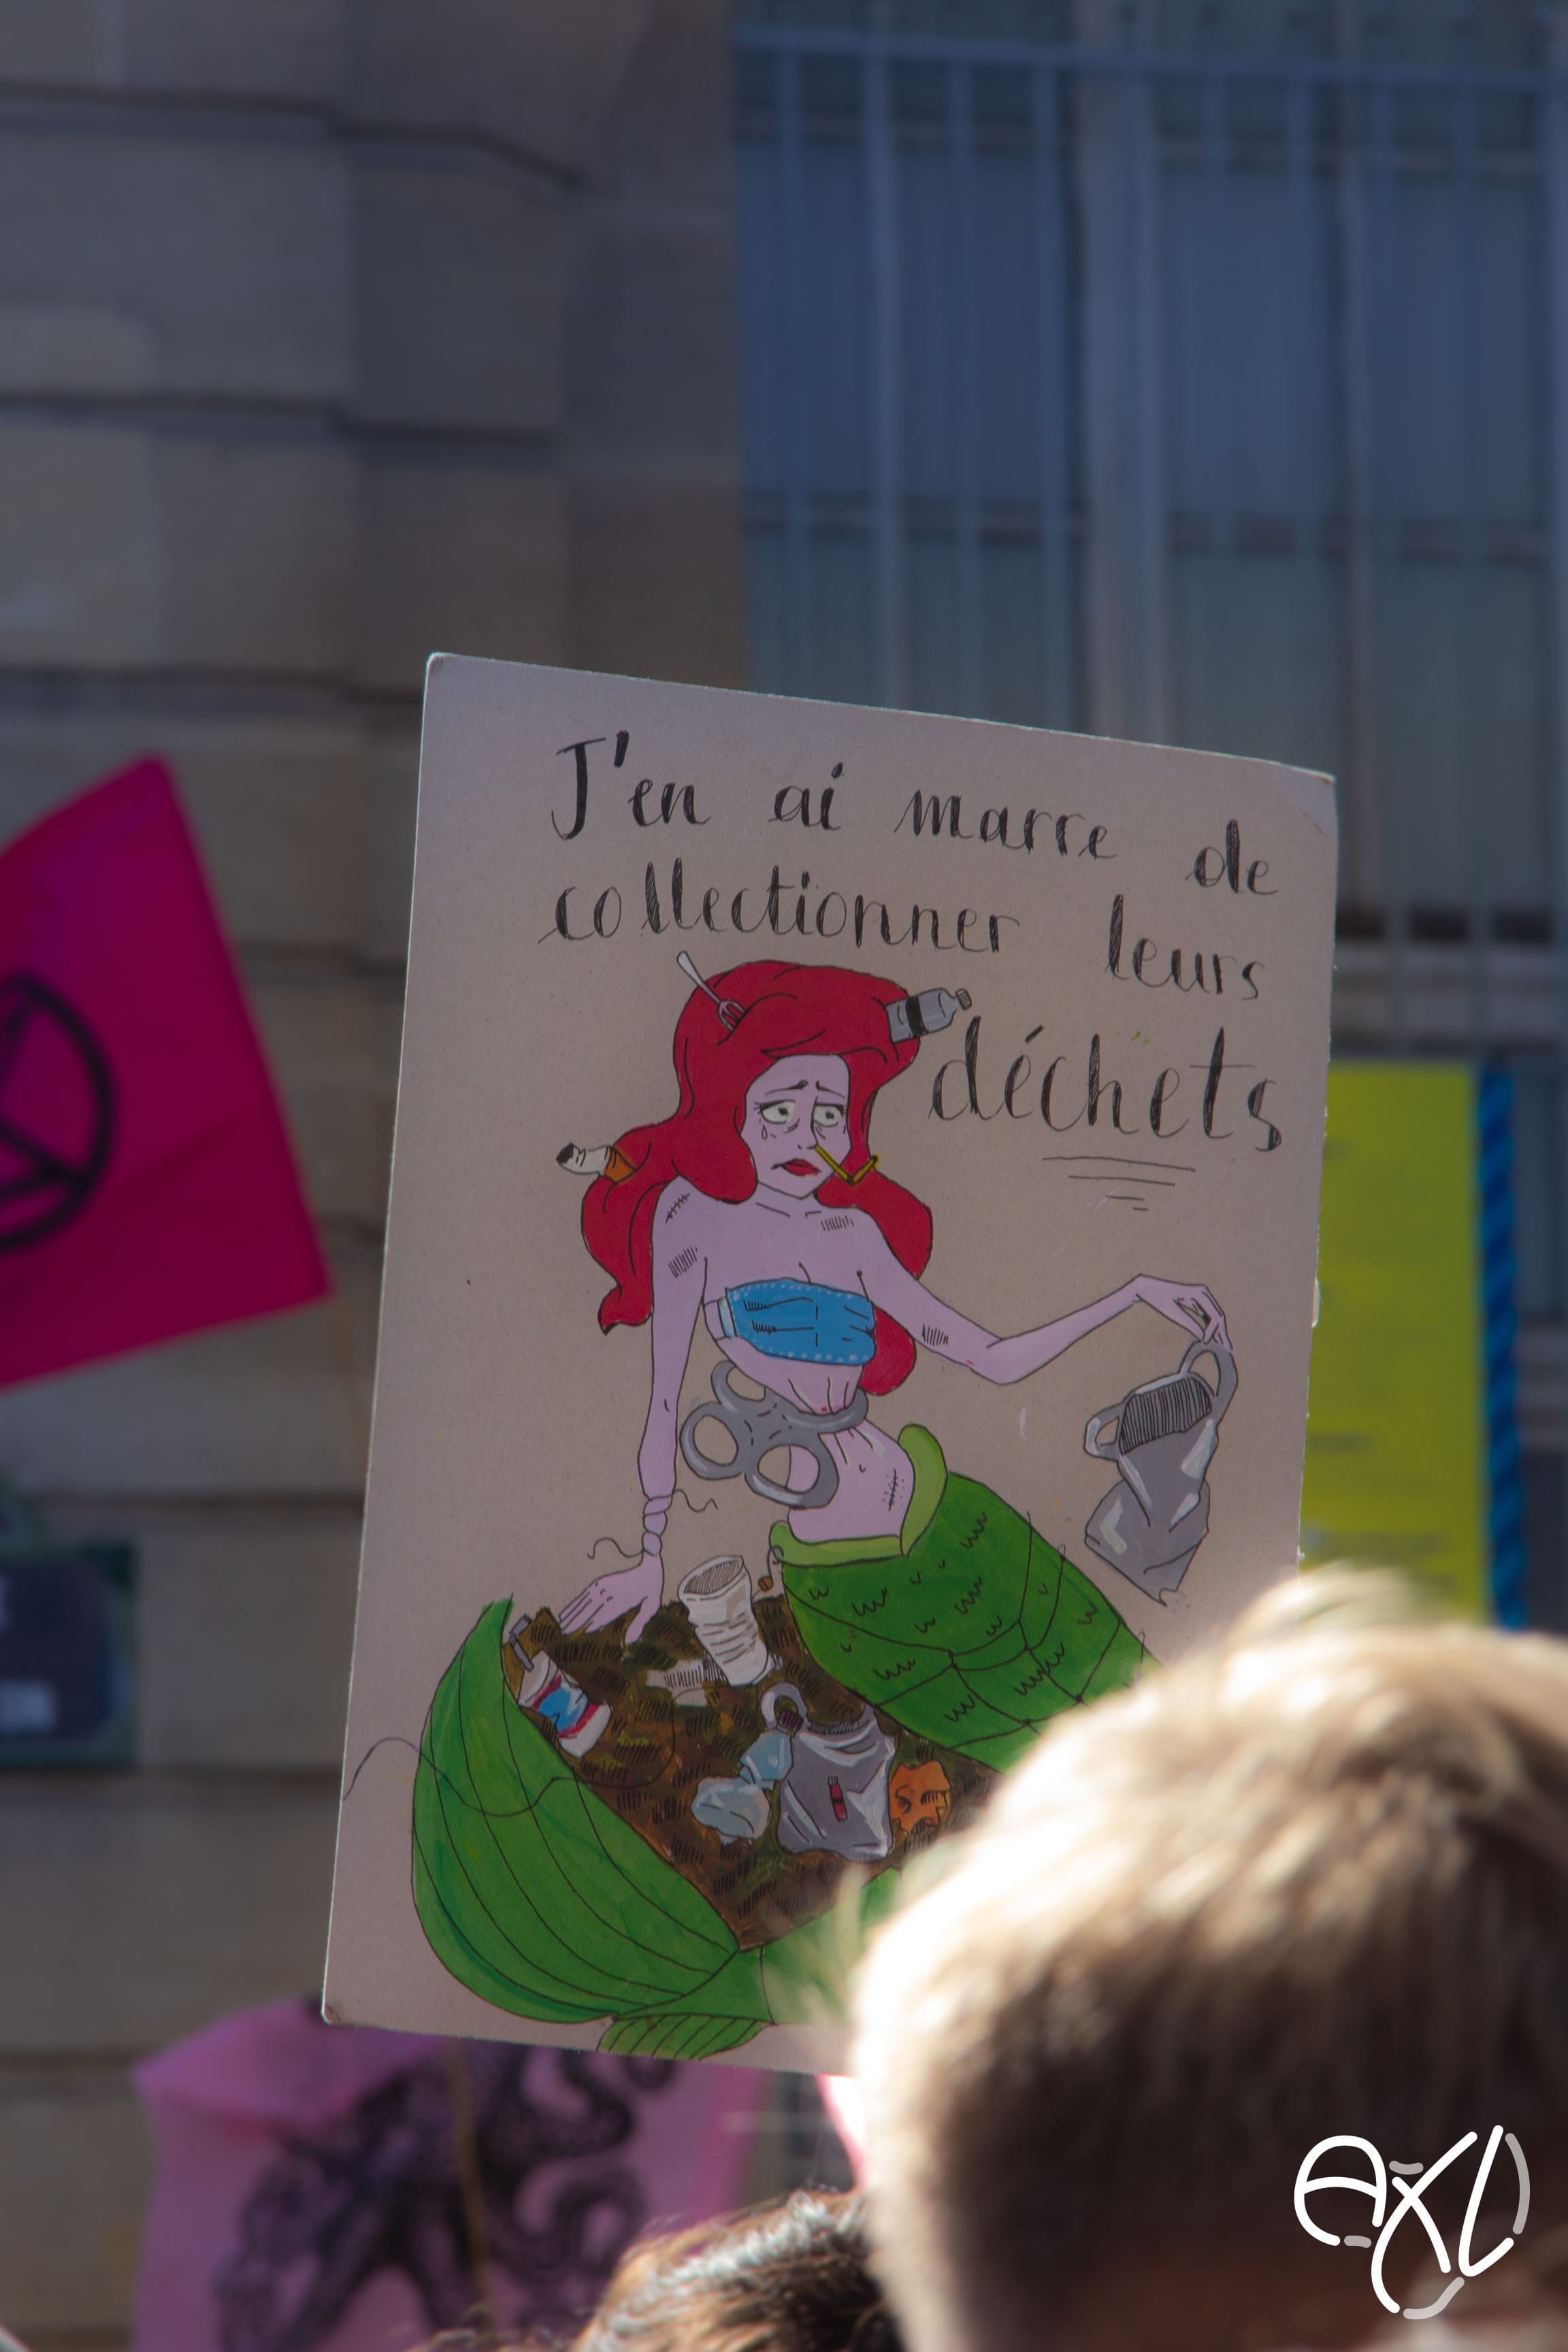 J'en ai marre de
collectionner leurs
déchets
AXL